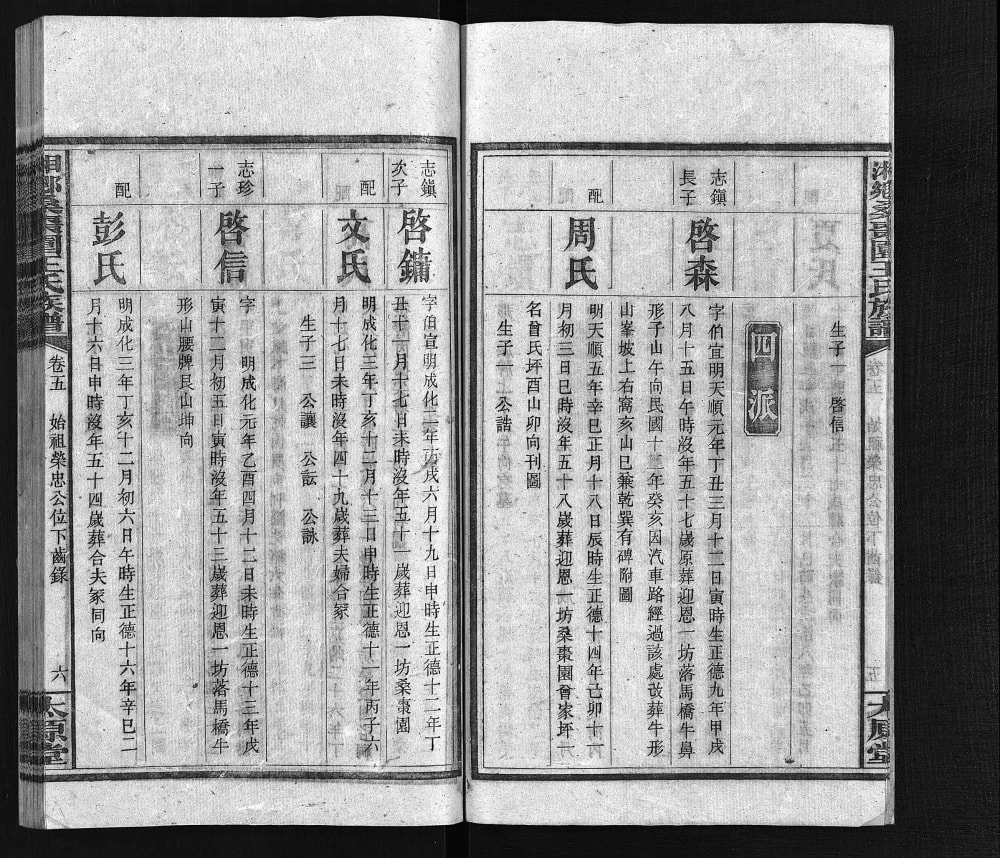 湘鄉桑棗園王氏族譜
卷五
始祖榮忠公位下齒錄
五
太原堂
生子一 啓信
四派
志鎮
長子
啓森
字伯宜明天順元年丁丑三月十二日寅時生正德九年甲戌
八月十五日午時沒年五十七歲原葬迎恩一坊落馬橋牛鼻
形子山午向民國十二年癸亥因汽車路經過該處改葬牛形
山峯坡上右窩亥山巳兼乾巽有碑附圖
配
周氏
明天順五年辛巳正月十八日辰時生正德十四年己卯十
月初三日巳時沒年五十八歲葬迎恩一坊桑棗園曾家坪
名曾氏坪酉山卯向刊圖
生子一 公誥
志鎮
次子
啓鏞
字伯宣明成化二年丙戌六月十九日申時生正德十二年丁
丑十一月十七日未時沒年五十一歲葬迎恩一坊桑棗園
配
文氏
明成化三年丁亥十二月十三日申時生正德十一年丙子六
月十七日未時沒年四十九歲葬夫婦合冢
生子三 公讓 公訟 公詠
志珍
一子
啓信
字 明成化元年乙酉四月十二日未時生正德十三年戊
寅十二月初五日寅時沒年五十三歲葬迎恩一坊落馬橋牛
形山腰牌艮山坤向
配
彭氏
明成化三年丁亥十二月初六日午時生正德十六年辛巳二
月十六日申時沒年五十四歲葬合夫冢同向
湘鄉桑棗園王氏族譜
卷五
始祖榮忠公位下齒錄
六
太原堂